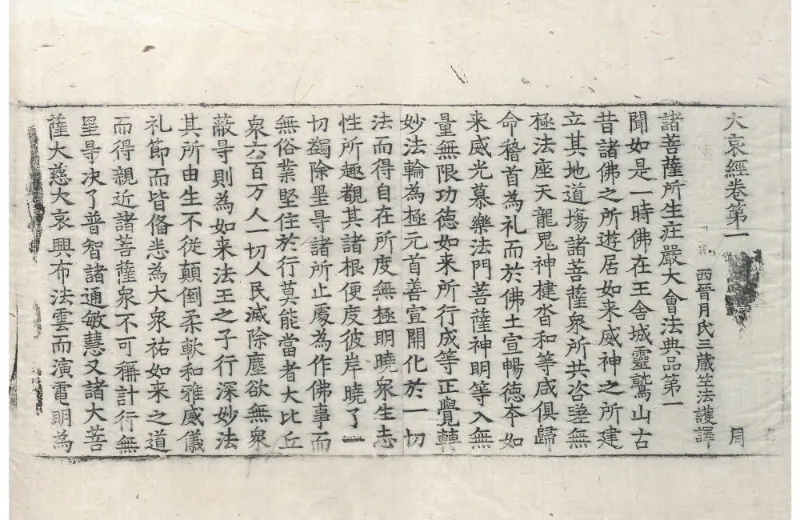 大哀經卷第一 周
西晉月氏三藏竺法護譯
諸菩薩所生莊嚴大會法典品第一
聞如是一時佛在王舍城靈鷲山古
昔諸佛之所遊居如来威神之所建
立其地道塲諸菩薩衆所共咨嗟無
極法座天龍鬼神揵沓和等咸俱歸
命稽首為礼而於佛土宣暢德本如
来威光慕樂法門菩薩神明等入無
量無限功德如来所行成等正覺轉
妙法輪為極元首善宣開化於一切
法而得自在所度無極明曉衆生志
性所趣觀其諸根便度彼岸曉了一
切蠲除罣㝵諸所止處為作佛事而
無俗業堅住於行莫能當者大比丘
衆六百万人一切人民滅除塵欲無衆
蔽㝵則為如来法王之子行深妙法
其所由生不從顛倒柔軟和雅威儀
礼節而皆俻悉為大衆祐如来之道
而得親近諸菩薩衆不可稱計行無
罣㝵决了普智諸通敏慧又諸大菩
薩大慈大哀興布法雲而演電明為